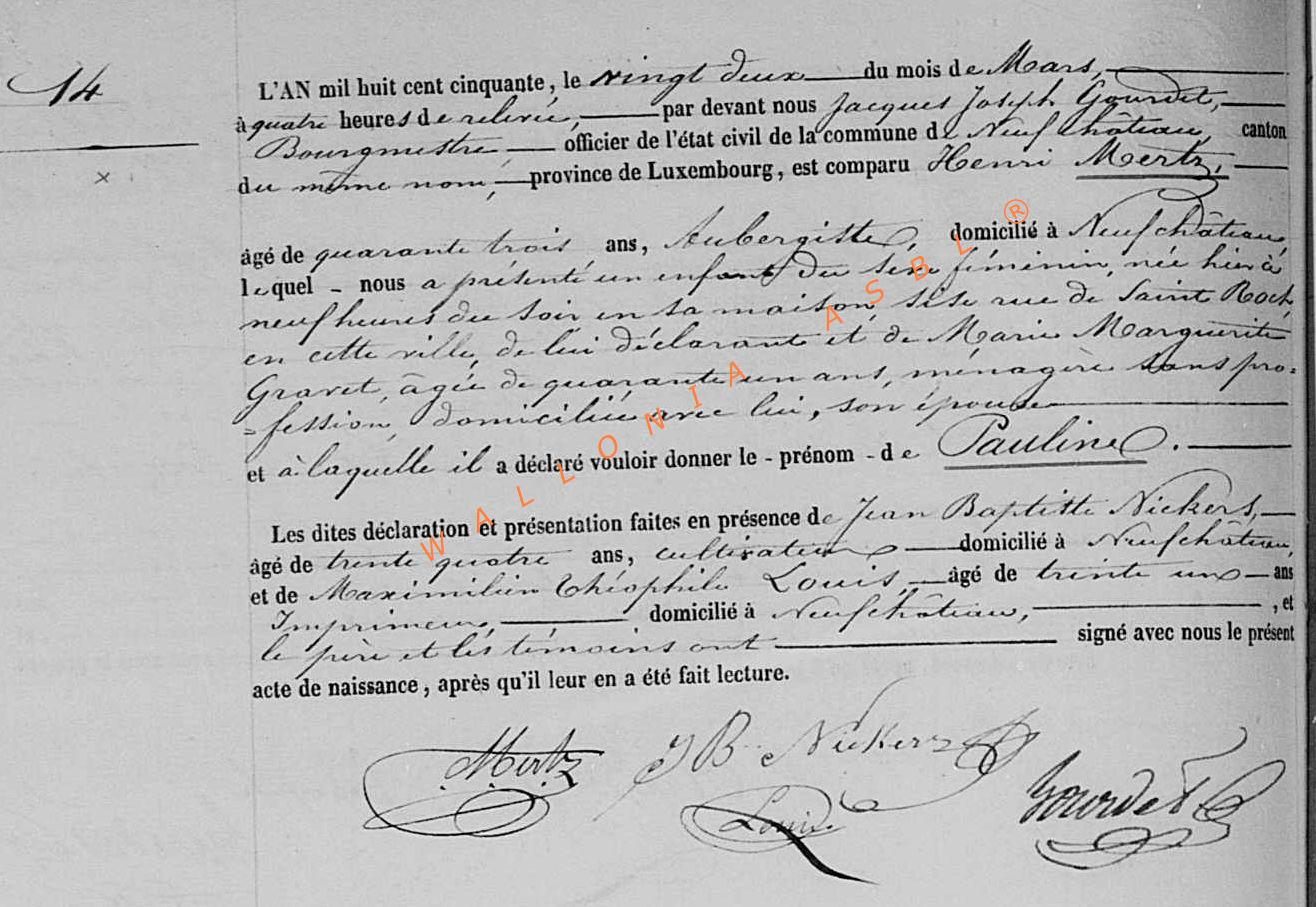 14
L'AN mil huit cent cinquante, le vingt deux du mois de Mars,
à quatre heures de relevée, par devant nous Jacques Joseph Gourdet,
Bourgmestre, officier de l'état civil de la commune de Neufchâteau, canton
du même nom, province de Luxembourg, est comparu Henri Mertz,
âgé de quarante trois ans, Aubergiste, domicilié à Neufchâteau
lequel - nous a présenté un enfant du sexe féminin, née hier à
neuf heures du soir en sa maison, sise rue de Saint Roch,
en cette ville, de lui déclarant et de Marie Marguerite
Gravet, âgée de quarante un ans, ménagère sans pro=
=fession, domiciliée avec lui, son épouse
et à laquelle il a déclaré vouloir donner le - prénom - de Pauline.
Les dites déclaration et présentation faites en présence de Jean Baptiste Nickers,
âgé de trente quatre ans, cultivateur domicilié à Neufchâteau,
et de Maximilien Théophile Louis, âgé de trente un ans
Imprimeur, domicilié à Neufchâteau, , et
le père et les témoins ont signé avec nous le présent
acte de naissance, après qu'il leur en a été fait lecture.
Mertz JB Nickers
Louis Gourdet
WALLONIA ASBL ®